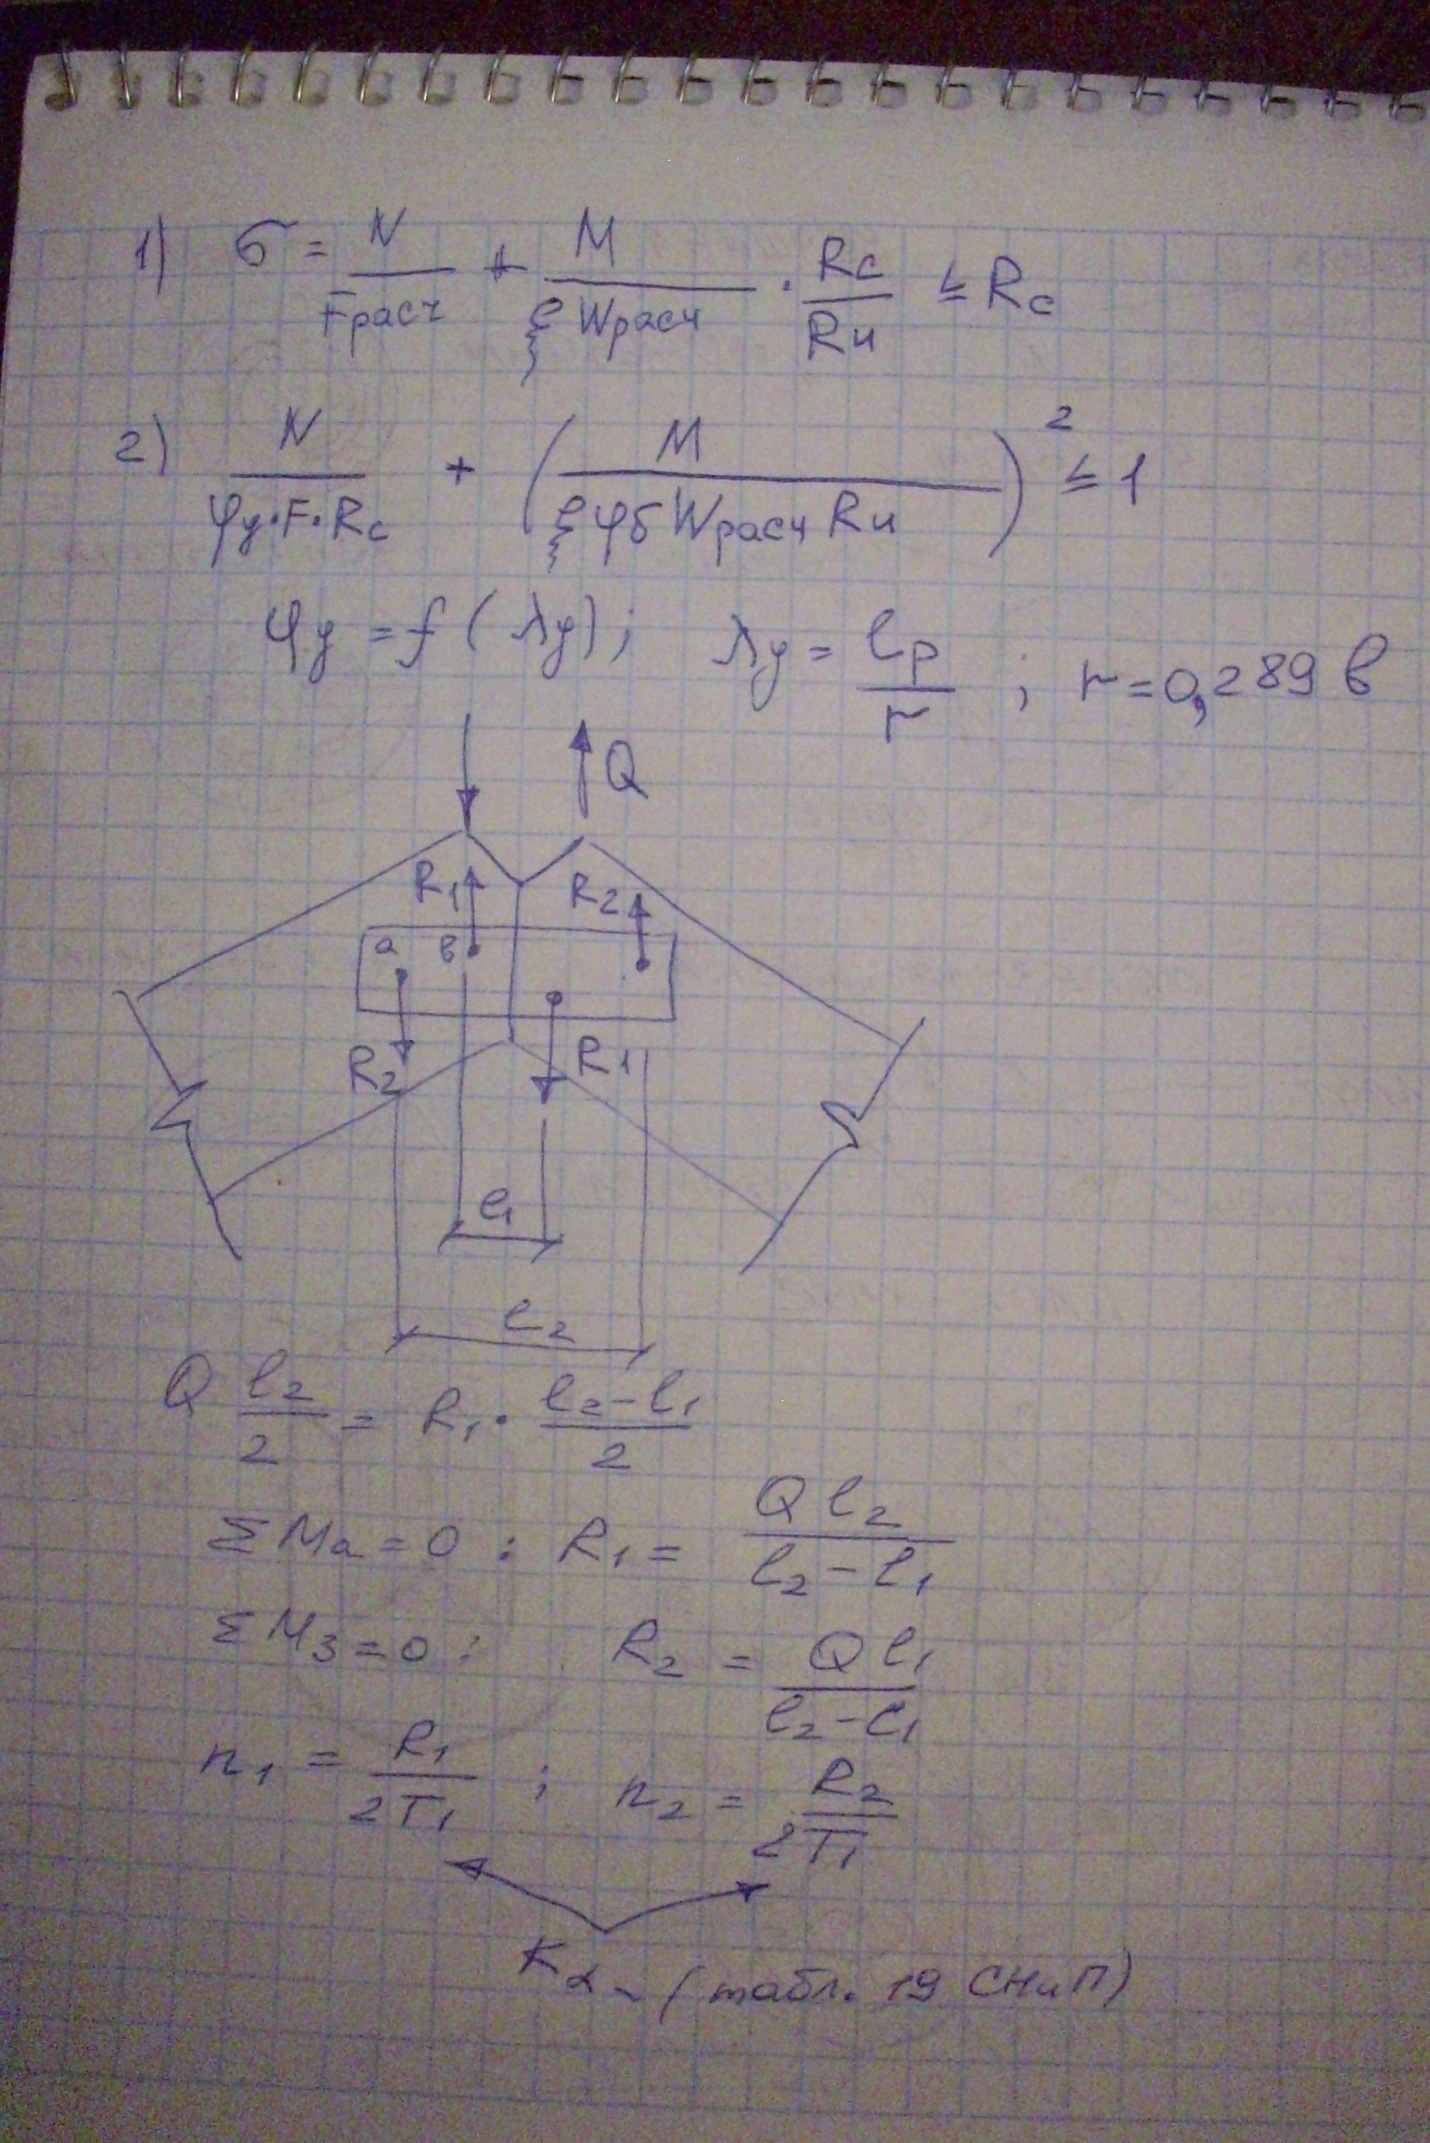 1) σ = N/Fрасч + M/(ξ Wрасч) · Rc/Rи ≤ Rc
2) N/(φy·F·Rc) + (M/(ξ φб Wрасч Rи))² ≤ 1
φy = f(λy); λy = lр/r; r=0,289 в
Q
R1 R2
a в
R2 R1
l1
l2
Q l2/2 = R1 · (l2-l1)/2
ΣMa=0 : R1 = Q l2/(l2-l1)
ΣM3=0 : R2 = Q l1/(l2-l1)
n1 = R1/2T1 ; n2 = R2/2T1
Kα - (табл. 19 СНиП)